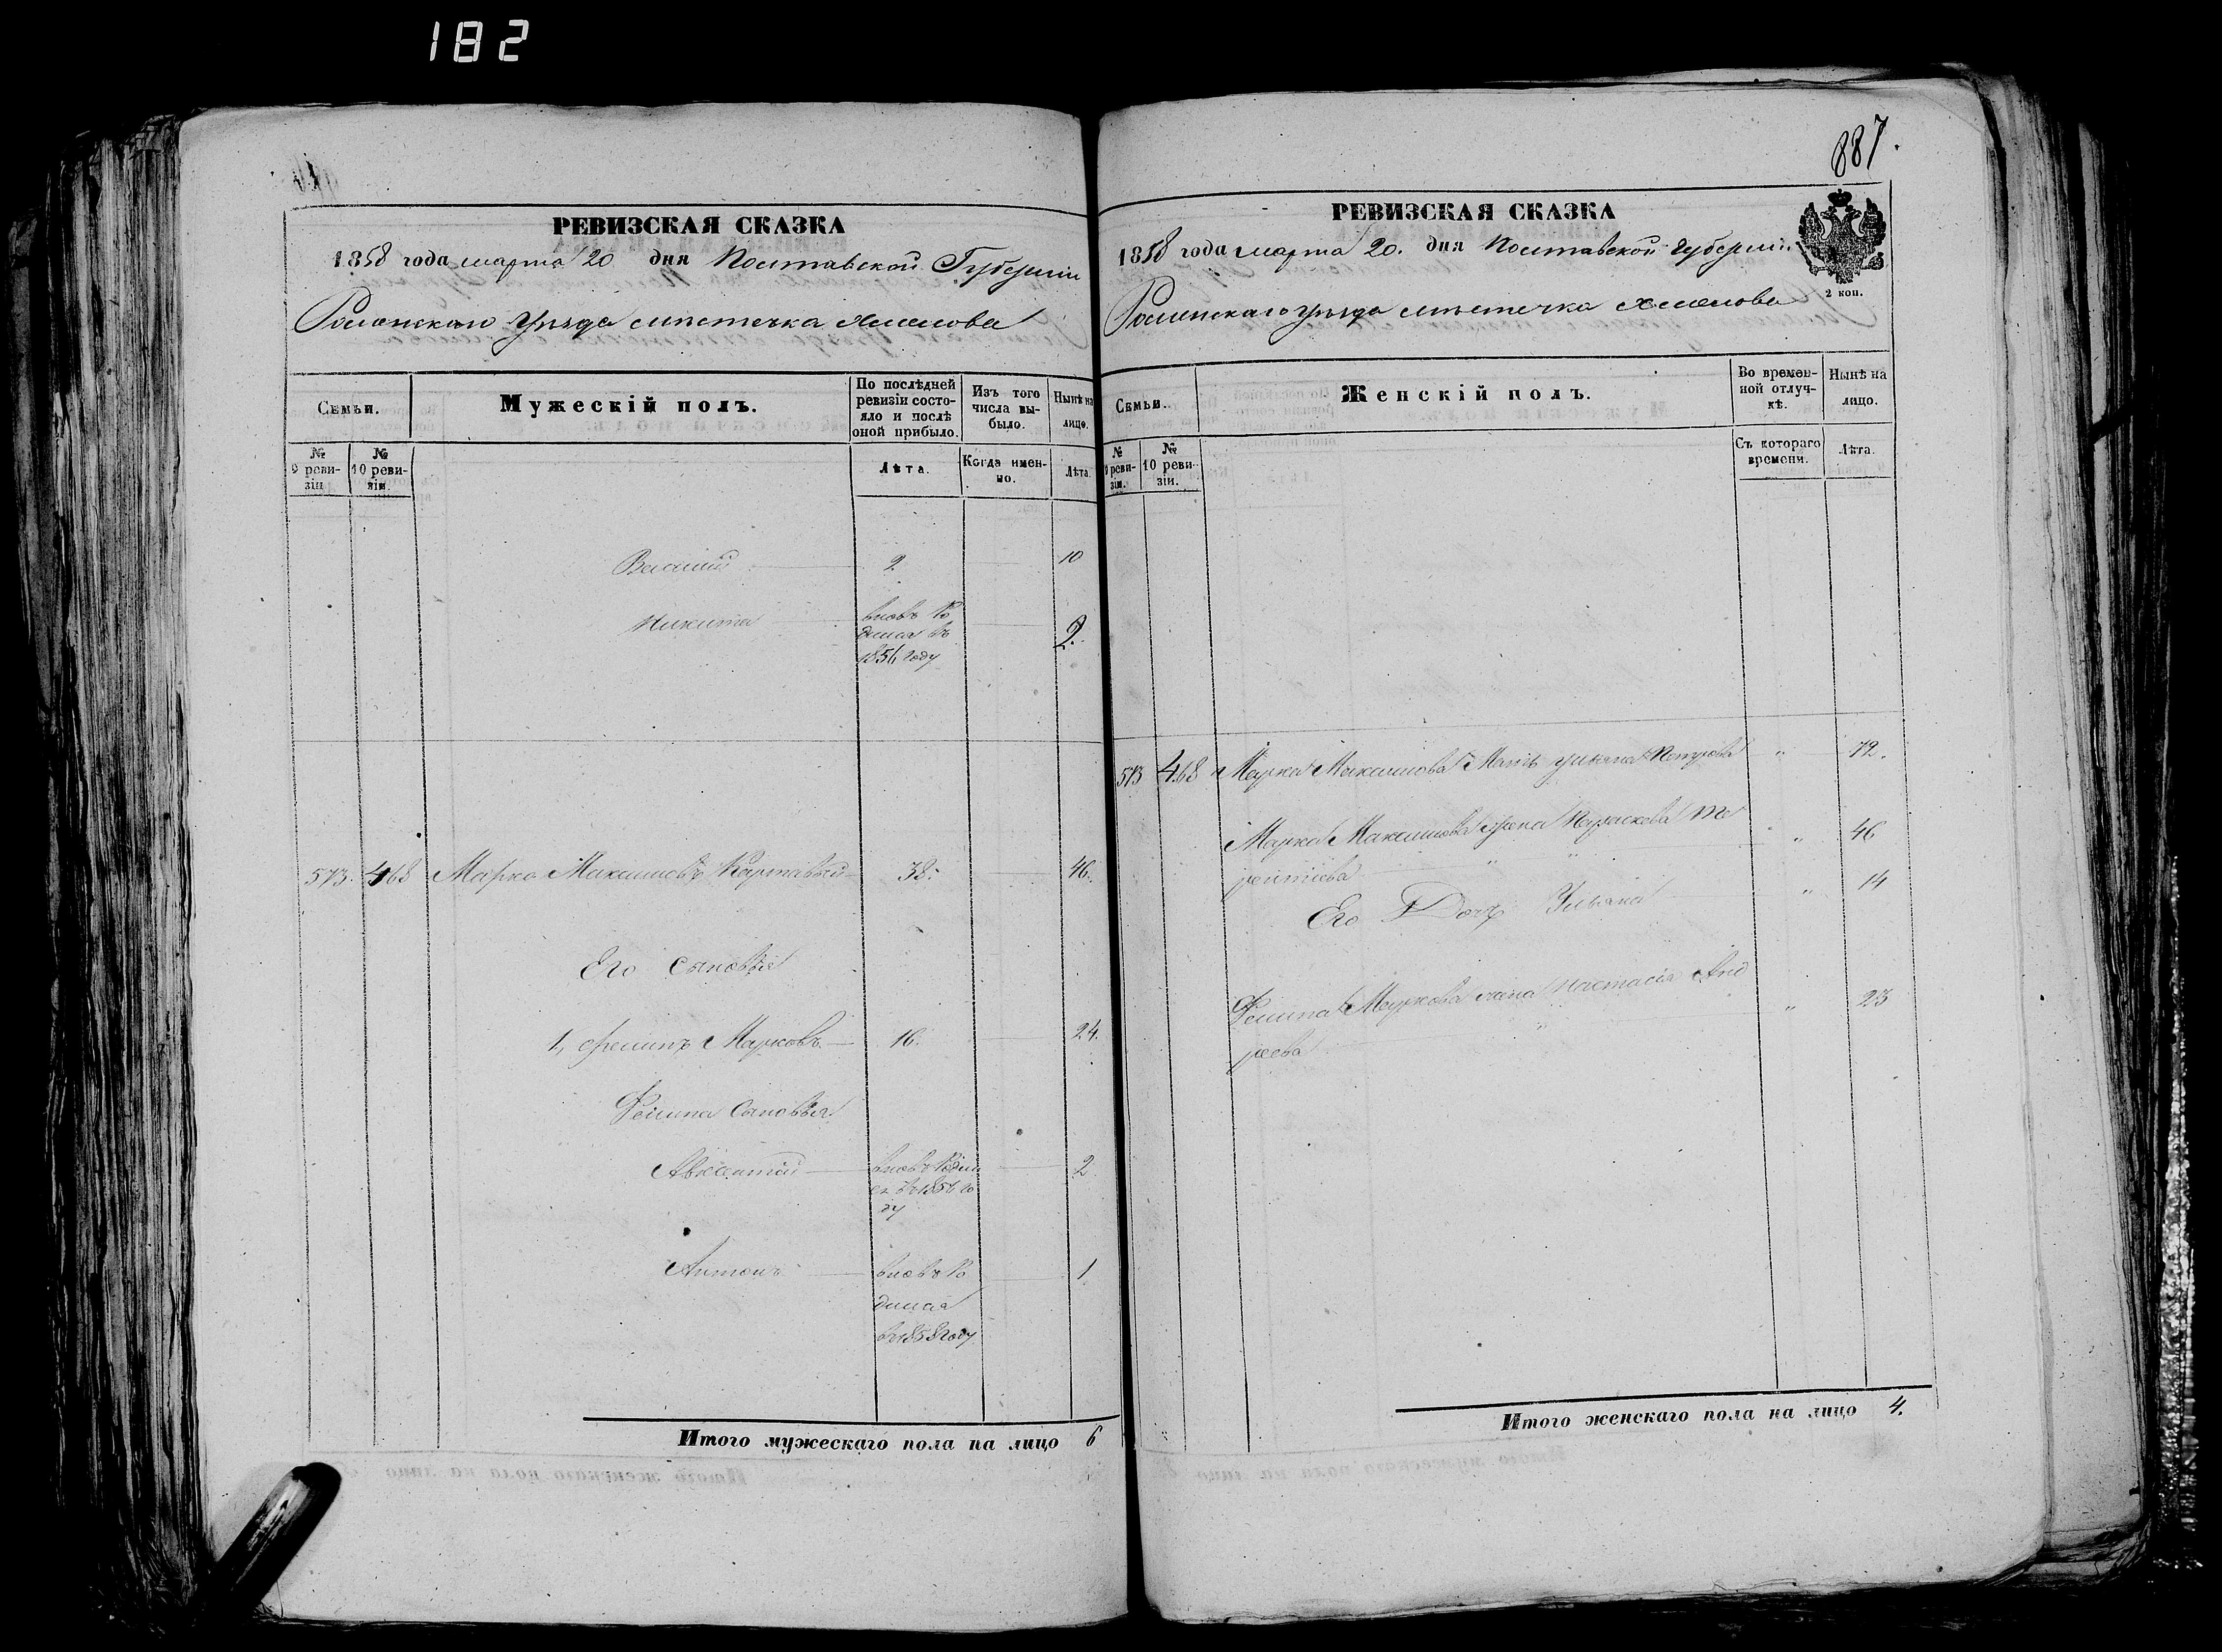 182
РЕВИЗСКАЯ СКАЗКА
1858 года марта 20 дня Полтавской Губерніи
Роменского уѣзда мѣстечка Хмелова
Семьи.
Мужескій полъ.
По послѣдней ревизіи состояло и послѣ оной прибыло.
Изъ того числа выбыло.
Нынѣ на лицо.
№ 9 ревизіи
№ 10 ревизіи.
Лѣта.
Когда именно.
Лѣта.
Василій 2 10
Никита вновь ро
дился въ 2.
1856 году
573. 468 Марко Максимовъ Картавый 38. 46.
Его Сыновья
1, Филипъ Марковъ 16. 24.
Филипа Сыновья
Авксентій вновь родил 2
ся въ 1856 го
ду
Антонъ вновь ро 1
дился
въ 1858 году
Итого мужескаго пола на лицо 6
887.
РЕВИЗСКАЯ СКАЗКА
1858 года марта 20. дня Полтавской губерніи
2 коп.
Роменскаго уѣзда мѣстечка Хмелова
Семьи.
Женскій полъ.
Во временной отлучкѣ.
Нынѣ на лицо.
№ 9 ревизіи.
№ 10 ревизіи.
Съ котораго времени.
Лѣта.
573 468 Марка Максимова Мать Ульяна Петрова " 72.
Марка Максимова жена Параскева Те " 46
рентіева
Его Дочь Ульяна " 14
Филипа Маркова жена Настасія Анд " 23
реева
Итого женскаго пола на лицо 4.